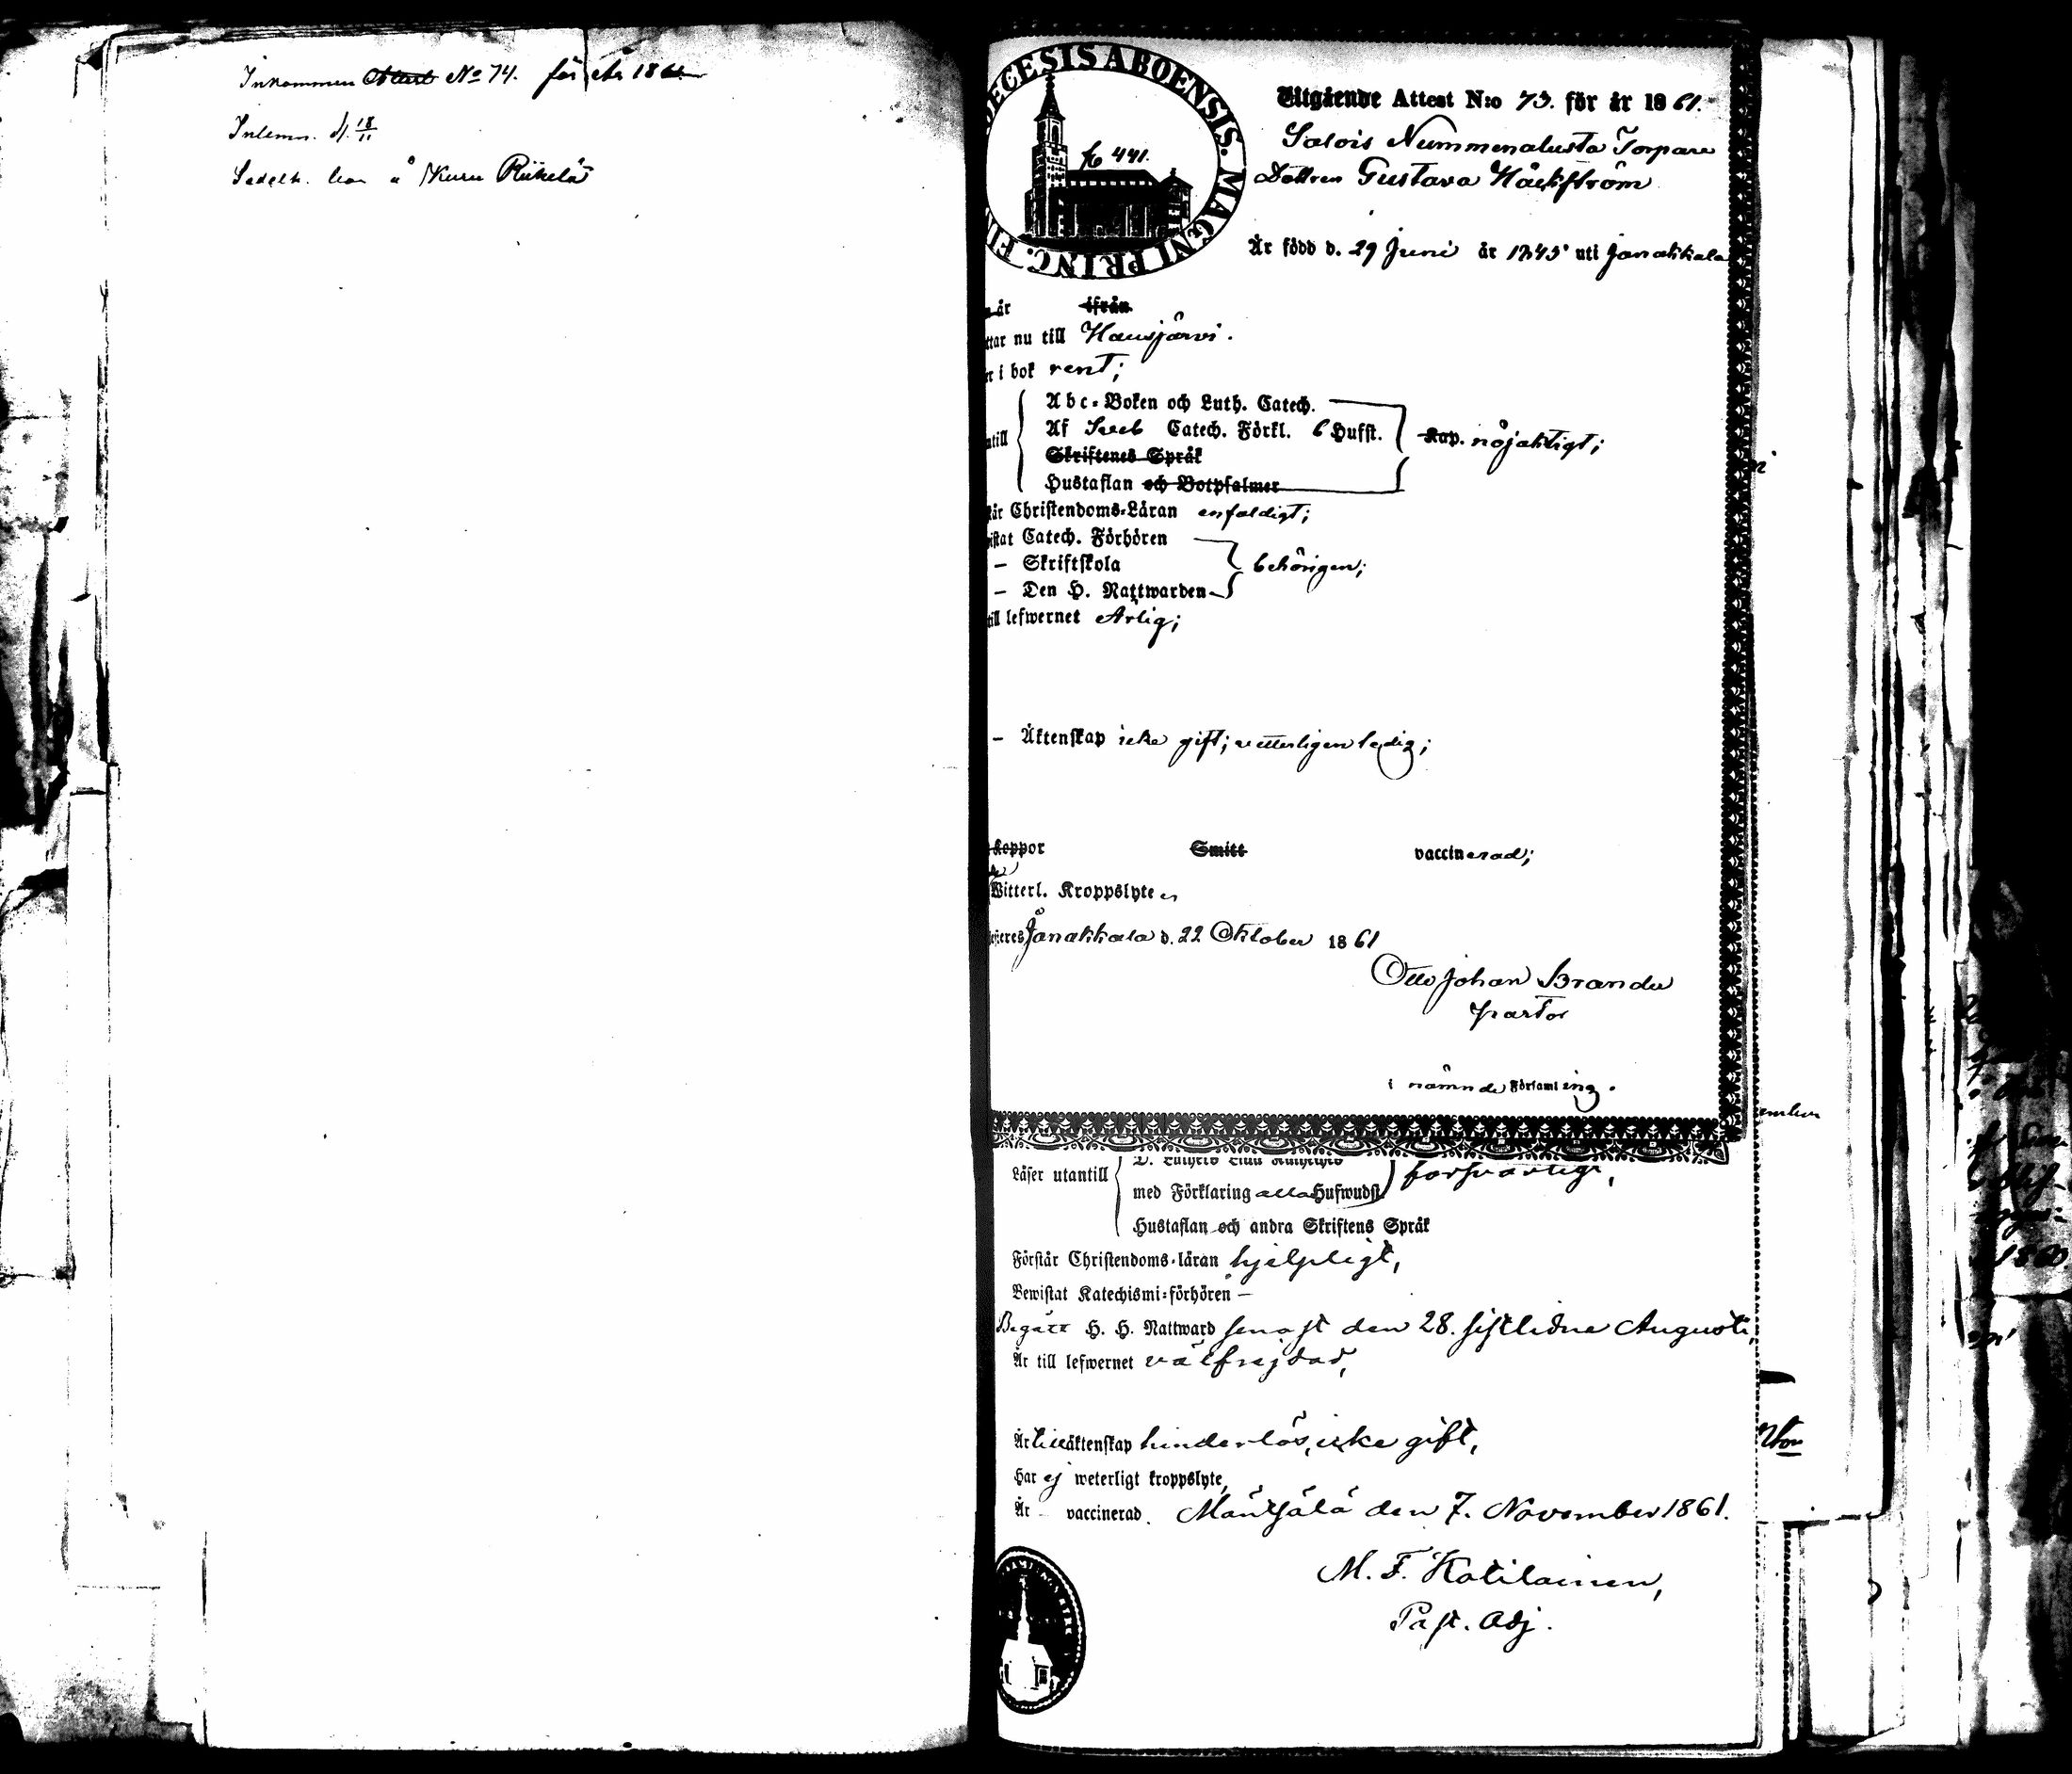 Inkommen Attest No 74. för år 1861.
Inlemn. d. 18/11
Sedelh. bor å Kuru Riihelä
DIOECESIS ABOENSIS. MAGNI PRINC. FIN
fo 441.
Utgående Attest N:o 73. för år 1861.
Salois Nummenalusta Torpare
Dottren Gustava Häckström
Är född d. 29 Juni år 1845 uti Janakkala
år ifrån
ttar nu till Hausjärvi.
er i bok rent;
Abc-Boken och Luth. Catech.
ntill Af Sveb Catech. Förkl. 6 Hufst. Kap. nöjaktigt;
Skriftenes Språk
Hustaflan och Botpsalmer
tår Christendoms-Läran enfaldigt;
istat Catech. Förhören
— Skriftskola behörigen;
— Den H. Nattwarden
till lefwernet Ärlig;
— Äktenskap icke gift; vetterligen ledig;
koppor Smitt vaccinerad;
Witterl. Kroppslyten
teres Janakkala d. 22 Oktober 1861
Otto Johan Brander
pastor
i nämnde Församling.
Läser utantill D. Luthers Lilla Katheches
med Förklaring alla Hufwudst. försvarligt,
Hustaflan och andra Skriftens Språk
Förstår Christendoms-läran hjelpligt,
Bewistat Katechismi-förhören —
Begått H. H. Nattward senast den 28. sistlidne Augusti,
Är till lefwernet välfrejdad,
Är till äktenskap hinderlös, icke gift,
Har ej weterligt kroppslyte,
Är — vaccinerad. Mäntsälä den 7. November 1861.
M. F. Kotilainen,
Past. Adj.